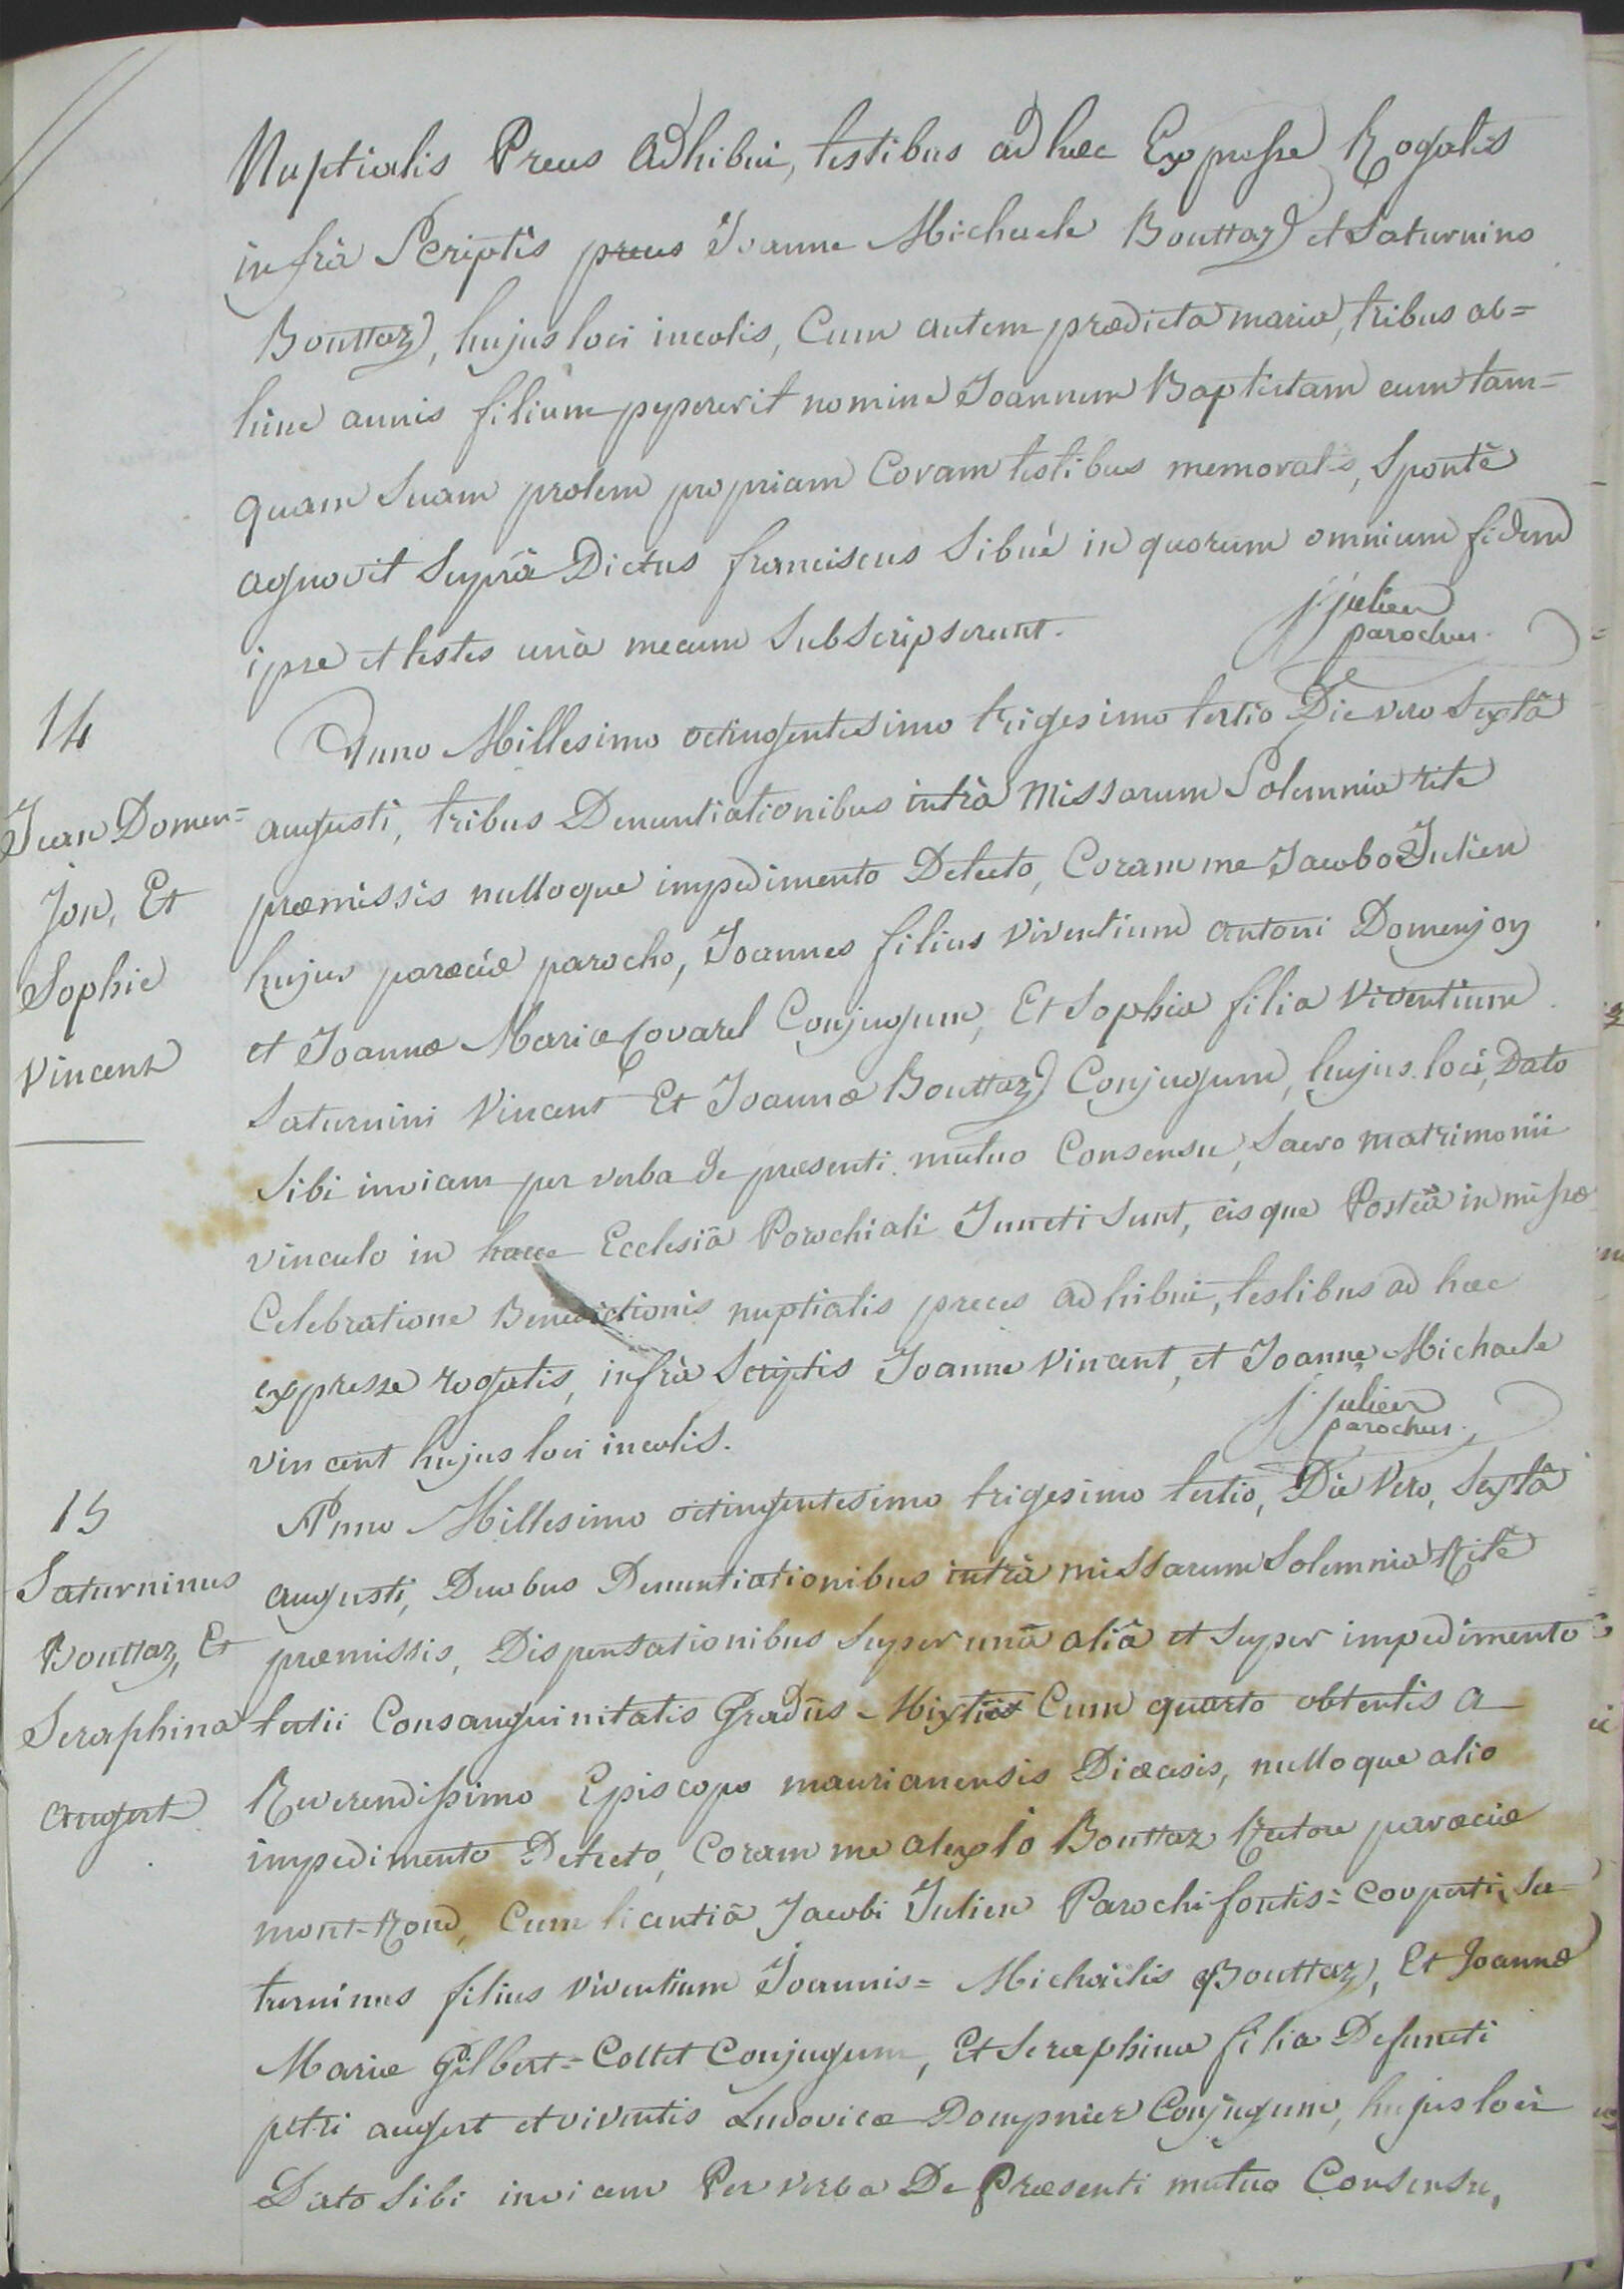 Nuptialis Preces adhibui, testibus ad hæc Expresse Rogatis
infrà Scriptis preces Joanne Michaele Bouttaz et Saturnino
Bouttaz, hujus loci incolis, Cum autem prædicta maria, tribus ab=
hinc annis filium pepererit nomine Joannem Baptistam eum tam=
quam Suam prolem propriam Coram testibus memoratis, Sponte
agnovit Suprà Dictus franciscus Sibué in quorum omnium fidem
ipse et testes unà mecum Subscripserunt.
j. julien
parochus.
14
Jean Domen=
jon, Et
Sophie
Vincent
Anno Millesimo octingentesimo trigesimo tertio Die vero Sextâ
augusti, tribus Denuntiationibus intrà Missarum Solemnia rite
præmissis nulloque impedimento Detecto, Coram me Jacobo Julien
hujus paræciæ parocho, Joannes filius viventium antoni Domenjon
et Joannæ Mariæ Covarel Conjugum, Et Sophia filia viventium
Saturnini Vincent Et Joannæ Bouttaz Conjugum, hujus loci, Dato
Sibi inviam per verba de præsenti mutuo Consensu, Sacro matrimonii
vinculo in hacce Ecclesiâ Parochiali Juncti Sunt, eisque Posteà in missæ
Celebratione Benedictionis nuptialis preces adhibui, testibus ad hæc
expresse rogatis, infrà Scriptis Joanne Vincent, et Joanne Michaele
vincent hujus loci incolis.
j. julien
parochus.
15
Saturninus
Bouttaz, Et
Seraphina
augert
Anno Millesimo octingentesimo trigesimo tertio, Die Vero, Sextâ
augusti, Duobus Denuntiationibus intrà missarum Solemnia Ritè
præmissis, Dispensationibus Super unâ aliâ et Super impedimento
tertii Consanguinitatis Gradûs Mixtii Cum quarto obtentis a
Reverendissimo Episcopo maurianensis Diæcesis, nulloque alio
impedimento Detecto, Coram me alexio Bouttaz Rectore paræciæ
mont-Rond, Cum licentiâ Jacobi Julien Parochi fontis=cooperti, Sa=
turninus filius viventium Joannis=Michaëlis Bouttaz, Et Joannæ
Mariæ Gilbert=Collet Conjugum, Et Seraphina filia Defuncti
petri augert et viventis Ludovicæ Dompnier Conjugum, hujus loci
Dato Sibi inviam Per verba De Præsenti mutuo Consensu,